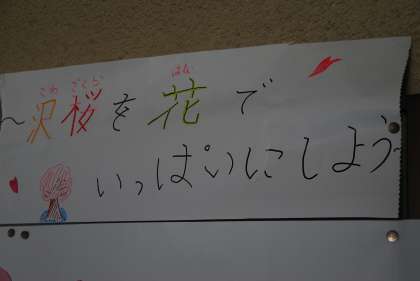 〜沢桜を花で
いっぱいにしよう